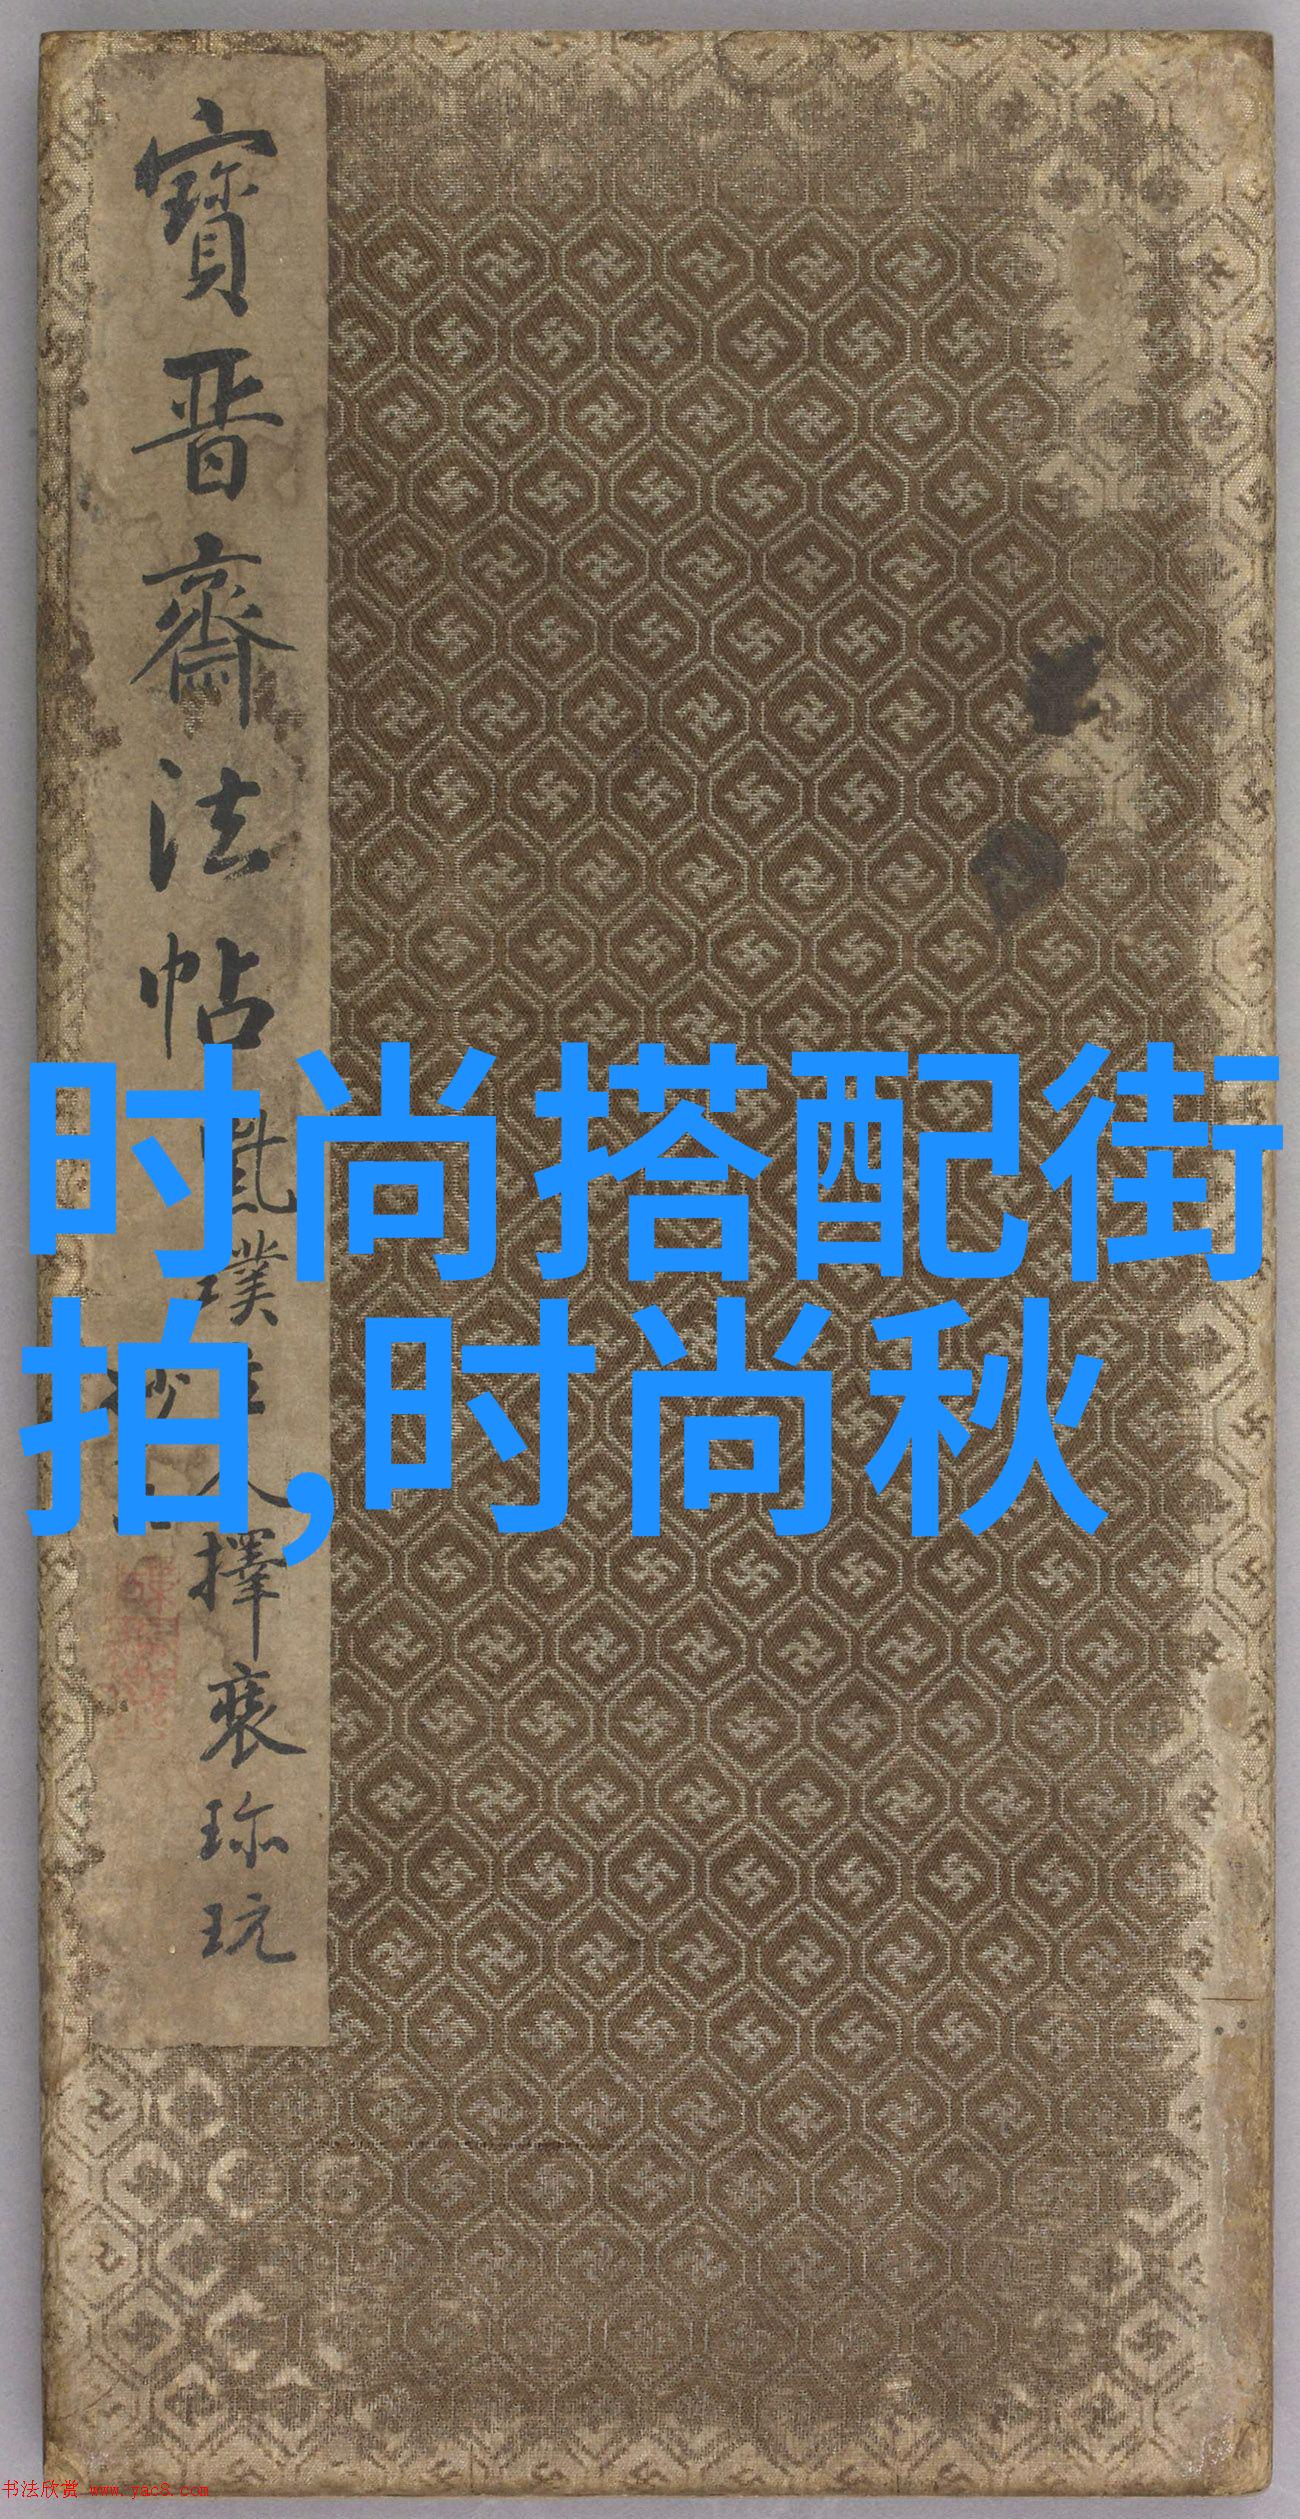 寶晋齋法帖
璞
人擇裵珎玩
时尚搭配街
拍,时尚秋
书法欣赏 www.yac8.com